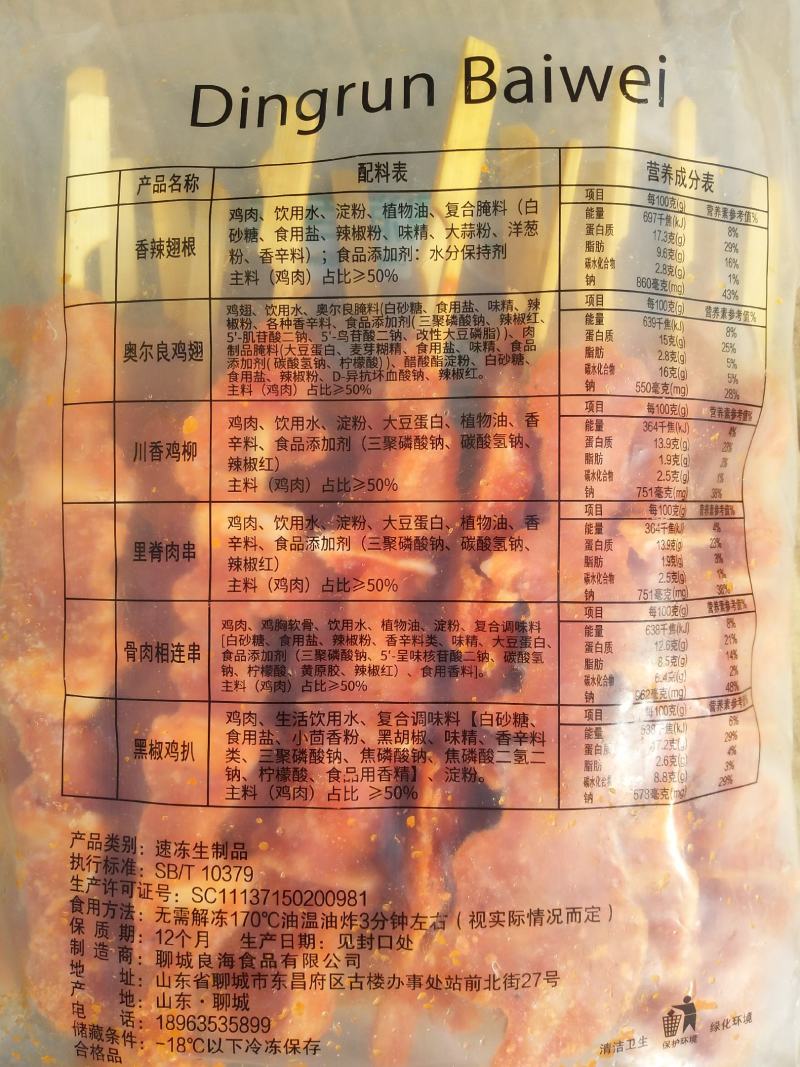 Dingrun Baiwei
产品名称 配料表 营养成分表
香辣翅根
鸡肉、饮用水、淀粉、植物油、复合腌料（白
砂糖、食用盐、辣椒粉、味精、大蒜粉、洋葱
粉、香辛料）；食品添加剂：水分保持剂
主料（鸡肉）占比≥50%
项目 每100克(g) 营养素参考值%
能量 697千焦(kJ) 8%
蛋白质 17.3克(g) 29%
脂肪 9.6克(g) 16%
碳水化合物 2.8克(g) 1%
钠 860毫克(mg) 43%
奥尔良鸡翅
鸡翅、饮用水、奥尔良腌料(白砂糖、食用盐、味精、辣
椒粉、各种香辛料、食品添加剂(三聚磷酸钠、辣椒红、
5'-肌苷酸二钠、5'-鸟苷酸二钠、改性大豆磷脂))、肉
制品腌料(大豆蛋白、麦芽糊精、食用盐、味精、食品
添加剂(碳酸氢钠、柠檬酸))、醋酸酯淀粉、白砂糖、
食用盐、辣椒粉、D-异抗坏血酸钠、辣椒红。
主料（鸡肉）占比≥50%
项目 每100克(g) 营养素参考值%
能量 639千焦(kJ) 8%
蛋白质 15克(g) 25%
脂肪 2.8克(g) 5%
碳水化合物 16克(g) 5%
钠 550毫克(mg) 28%
川香鸡柳
鸡肉、饮用水、淀粉、大豆蛋白、植物油、香
辛料、食品添加剂（三聚磷酸钠、碳酸氢钠、
辣椒红）
主料（鸡肉）占比≥50%
项目 每100克(g) 营养素参考值%
能量 364千焦(kJ) 4%
蛋白质 13.9克(g) 23%
脂肪 1.9克(g)
碳水化合物 2.5克(g) 1%
钠 751毫克(mg) 38%
里脊肉串
鸡肉、饮用水、淀粉、大豆蛋白、植物油、香
辛料、食品添加剂（三聚磷酸钠、碳酸氢钠、
辣椒红）
主料（鸡肉）占比≥50%
项目 每100克(g) 营养素参考值%
能量 364千焦(kJ) 4%
蛋白质 13.9克(g) 23%
脂肪 1.9克(g) 3%
碳水化合物 2.5克(g) 1%
钠 751毫克(mg) 38%
骨肉相连串
鸡肉、鸡胸软骨、饮用水、植物油、淀粉、复合调味料
[白砂糖、食用盐、辣椒粉、香辛料类、味精、大豆蛋白、
食品添加剂（三聚磷酸钠、5'-呈味核苷酸二钠、碳酸氢
钠、柠檬酸、黄原胶、辣椒红）、食用香料]。
主料（鸡肉）占比≥50%
项目 每100克(g) 营养素参考值%
能量 638千焦(kJ) 8%
蛋白质 12.6克(g) 21%
脂肪 8.5克(g) 14%
碳水化合物 6.4克(g) 2%
钠 962毫克(mg) 48%
黑椒鸡扒
鸡肉、生活饮用水、复合调味料【白砂糖、
食用盐、小茴香粉、黑胡椒、味精、香辛料
类、三聚磷酸钠、焦磷酸钠、焦磷酸二氢二
钠、柠檬酸、食品用香精】、淀粉。
主料（鸡肉）占比 ≥50%
项目 每100克(g) 营养素参考值%
能量 千焦(kJ) 6%
蛋白质 17.2克(g) 29%
脂肪 2.6克(g) 4%
碳水化合物 8.8克(g) 3%
钠 578毫克(mg) 29%
产品类别：速冻生制品
执行标准：SB/T 10379
生产许可证号：SC11137150200981
食用方法：无需解冻170℃油温油炸3分钟左右（视实际情况而定）
保质期：12个月 生产日期：见封口处
制造商：聊城良海食品有限公司
地址：山东省聊城市东昌府区古楼办事处站前北街27号
产地：山东·聊城
电话：18963535899
储藏条件：-18℃以下冷冻保存
合格品
清洁卫生 保护环境 绿化环境